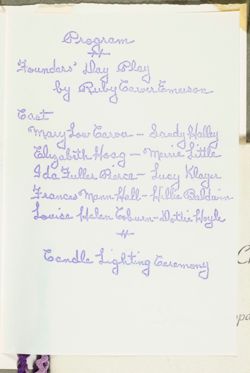 Program
Founders' Day Play
by Ruby Carver Emerson
Cast
Mary Low Carver — Sandy Halley
Elizabeth Hoag — Merrie Little
Ida Fuller Pierce — Lucy Klayer
Frances Mann Hall — Willie Baldwin
Louise Helen Coburn — Dottie Hoyle
Candle Lighting Ceremony